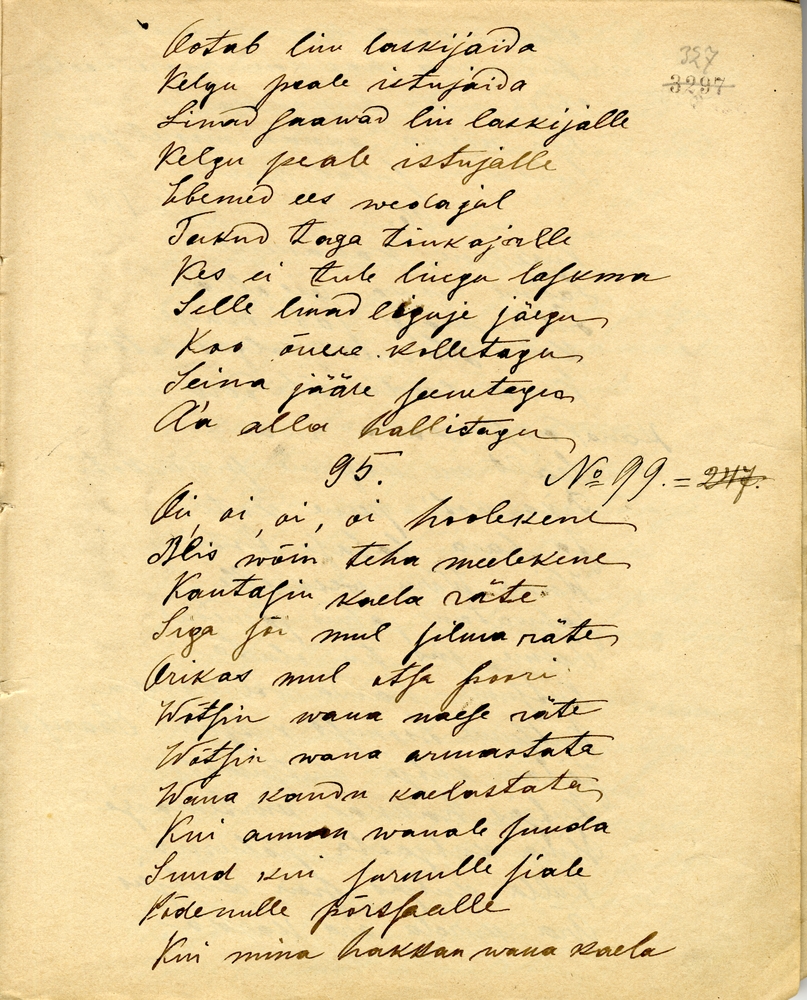 327
3297
Ootab liu laskijaida
Kelgu peale istujaida
Linad saawad liu laskijalle
Kelgu peale istujalle
Ebemed ees wedajal
Takud taga tõukajalle
Kes ei tule liugu laskma
Selle linad liguje jäegu
Koo õuere kolletagu
Seina jääre seenetagu
Aia alla hallitagu
95. № 99. = 247.
Oi, oi, oi, oi hoolekene
Mis wõin teha meelekene
Kautasin kaela räte
Siga sõi mul silma räte
Orikas mul otsa poori
Wõtsin wana naese räte
Wõtsin wana armastata
Wana kandu kaelastata
Kui annan wanale suuda
Suud kui surnulle siale
Kõdenulle põrssaalle
Kui mina hakkan wana kaela